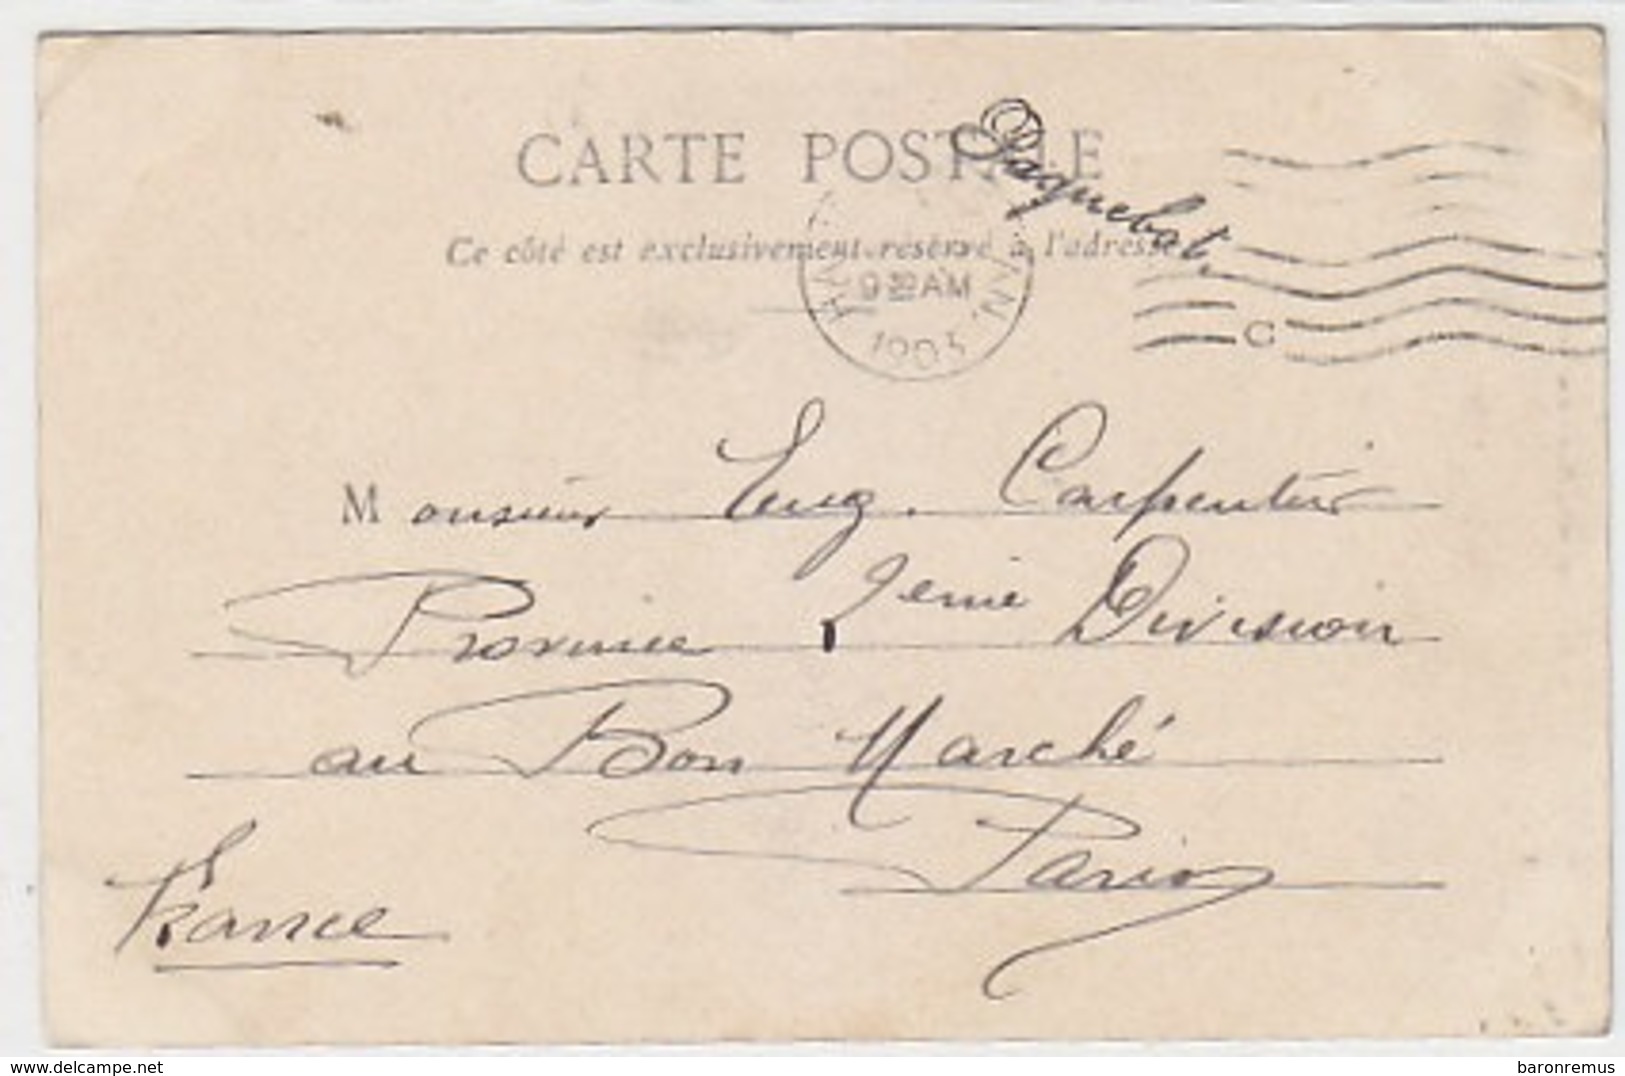 CARTE POSTALE
Paquebot.
Ce côté est exclusivement réservé à l'adresse
9 30 AM
1905
C
Monsieur Eug. Carpentier
Province 2eme Division
au Bon Marché
Paris
France
delcampe.net
baronremus